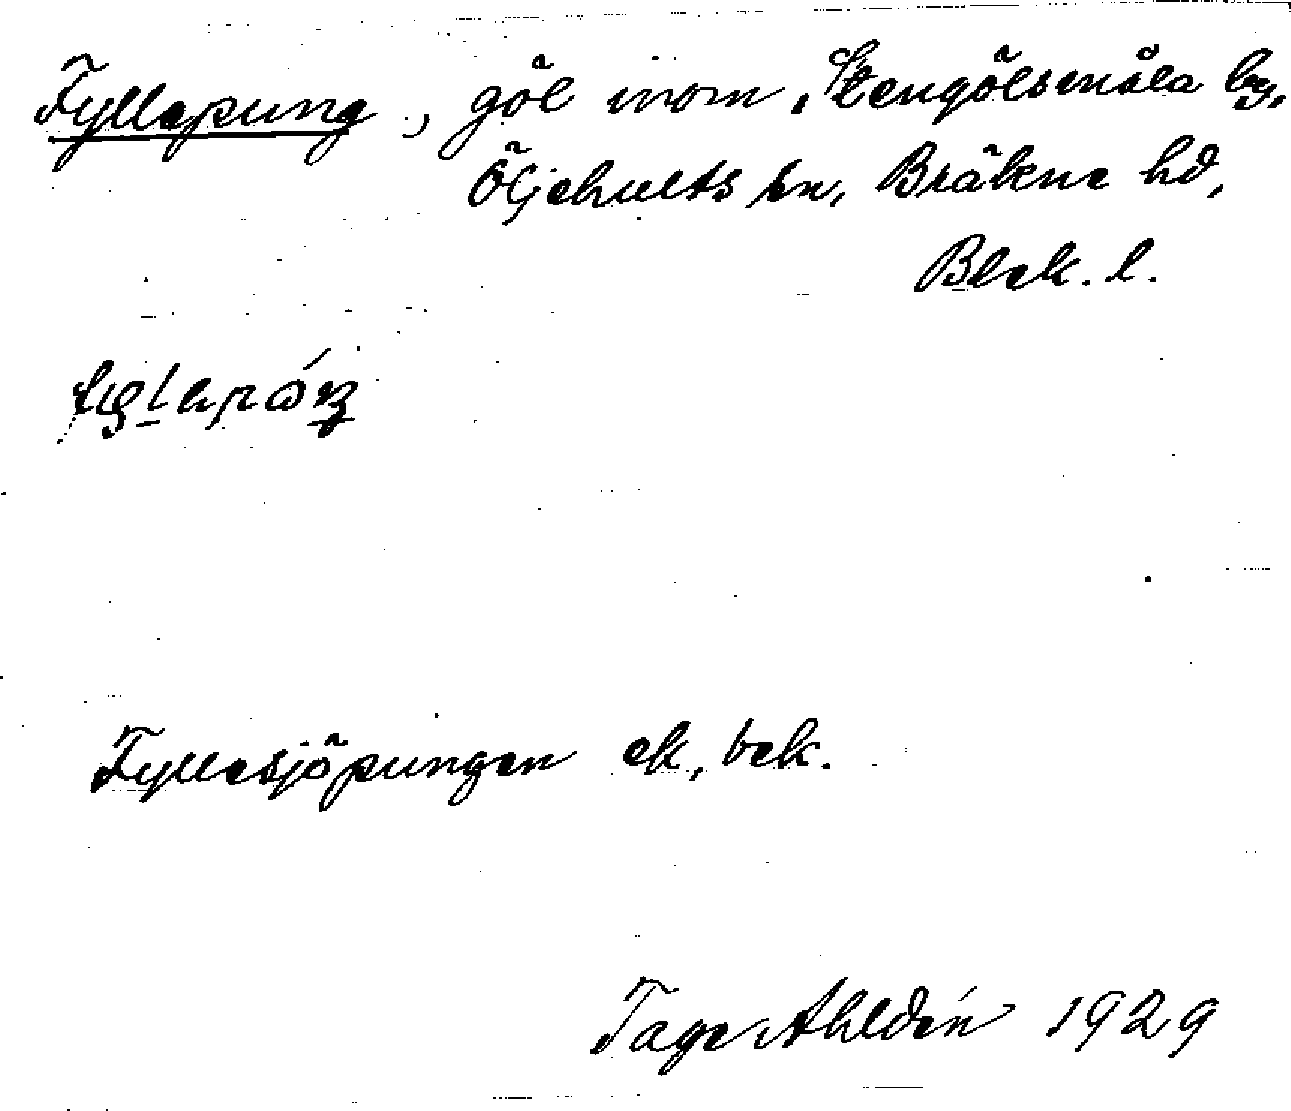 Fyllepung, göl inom Stengölsmåla by,
Öljehults sn, Bräkne hd,
Blek. l.
Fyllesjöpungen ek. bek.
Tage Ahldén 1929